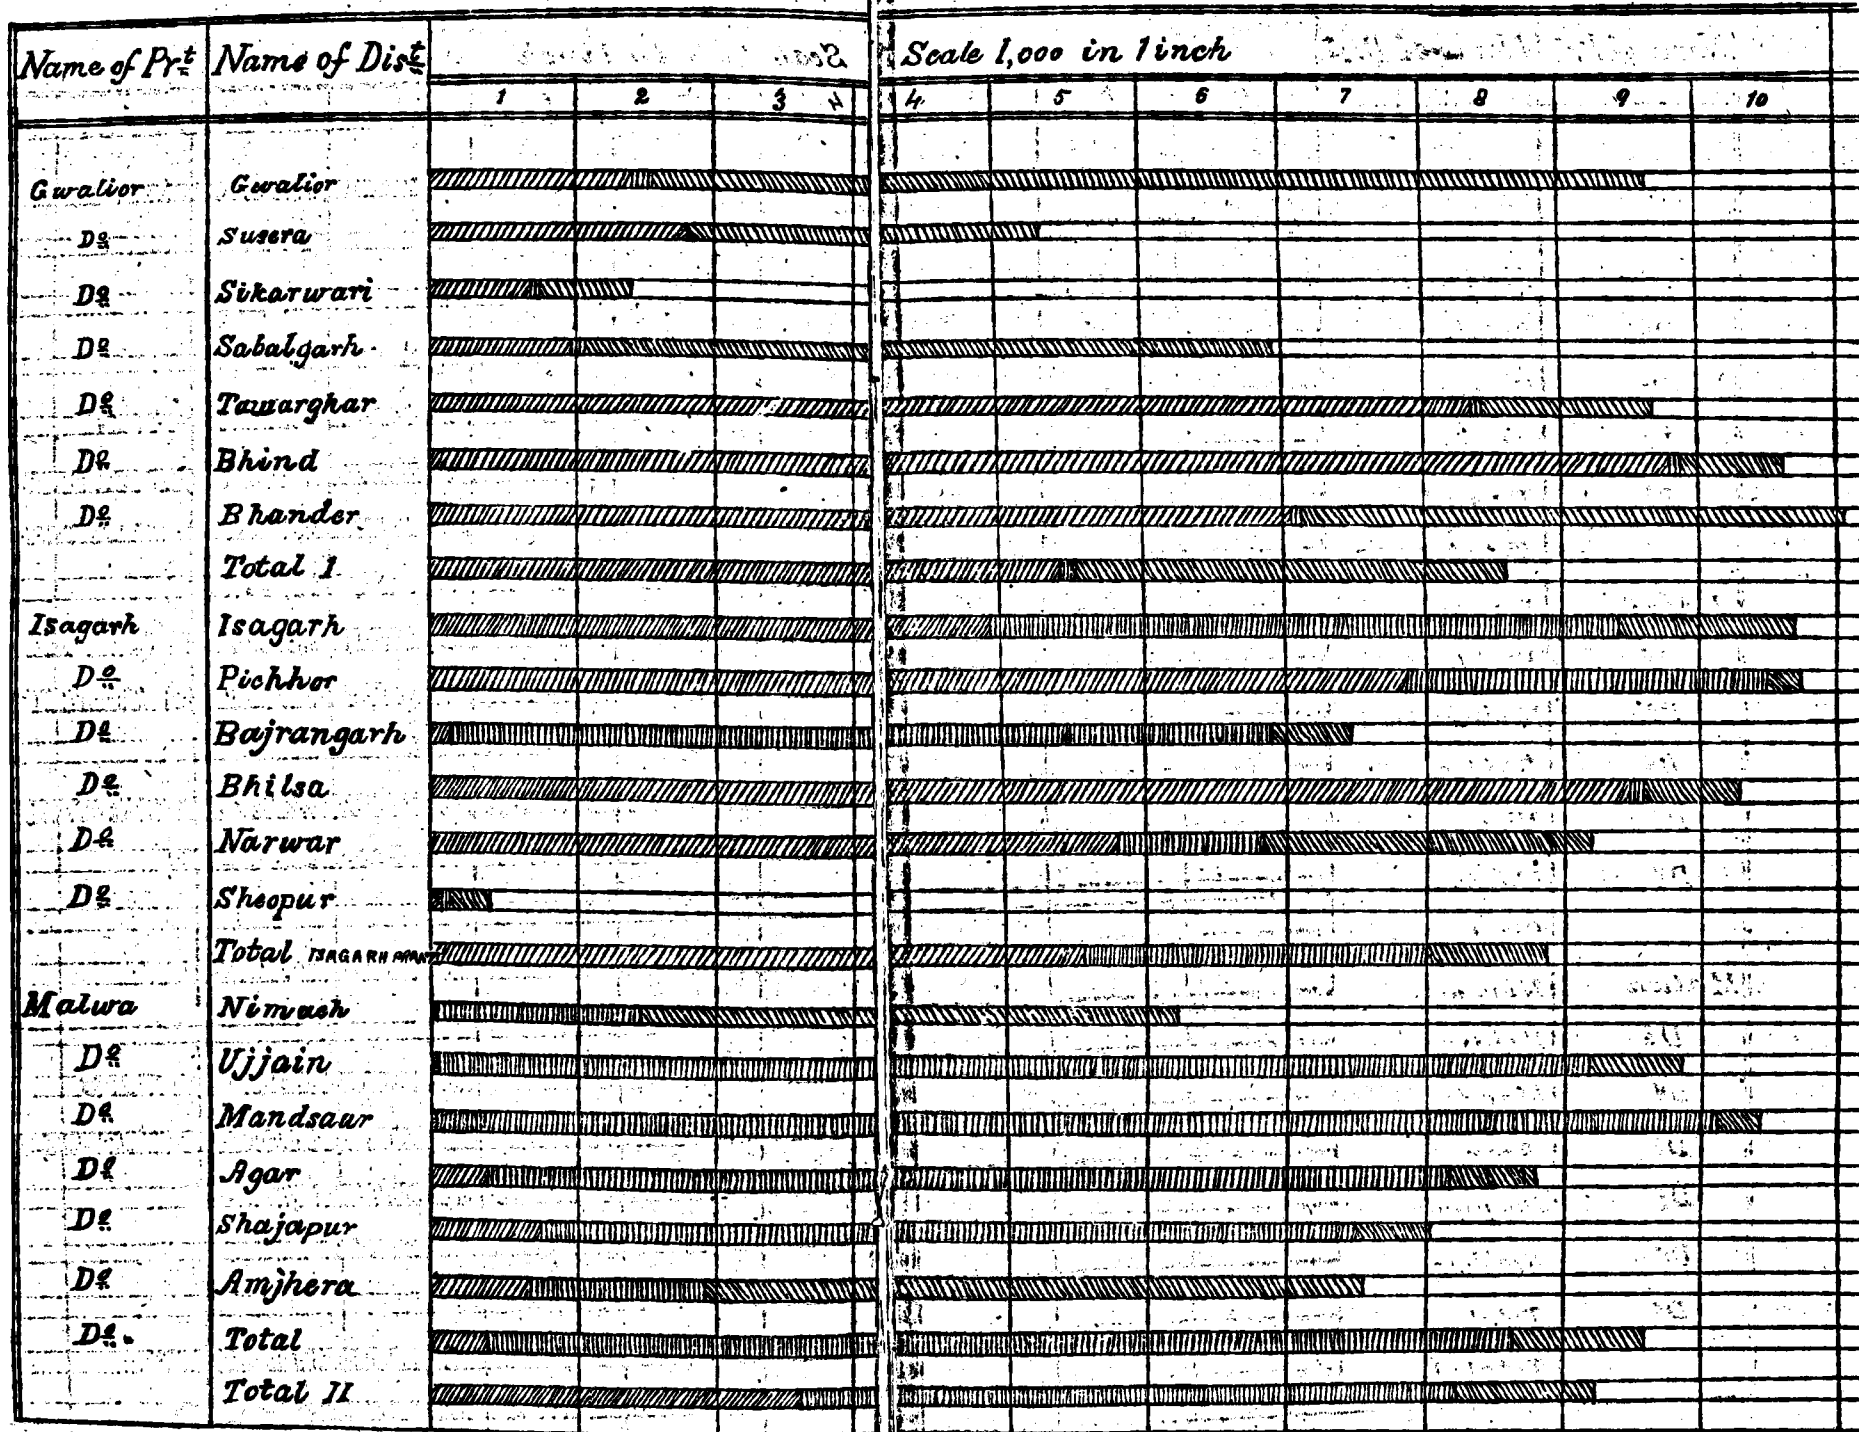 Name of Prt Name of Dist Scale 1,000 in 1 inch
1 2 3 4 5 6 7 8 9 10
Gwalior Gwalior
Do Susera
Do Sikarwari
Do Sabalgarh
Do Tawarghar
Do Bhind
Do Bhander
Total I
Isagarh Isagarh
Do Pichhor
Do Bajrangarh
Do Bhilsa
Do Narwar
Do Sheopur
Total ISAGARH
Malwa Nimach
Do Ujjain
Do Mandsaur
Do Agar
Do Shajapur
Do Amjhera
Do. Total
Total II